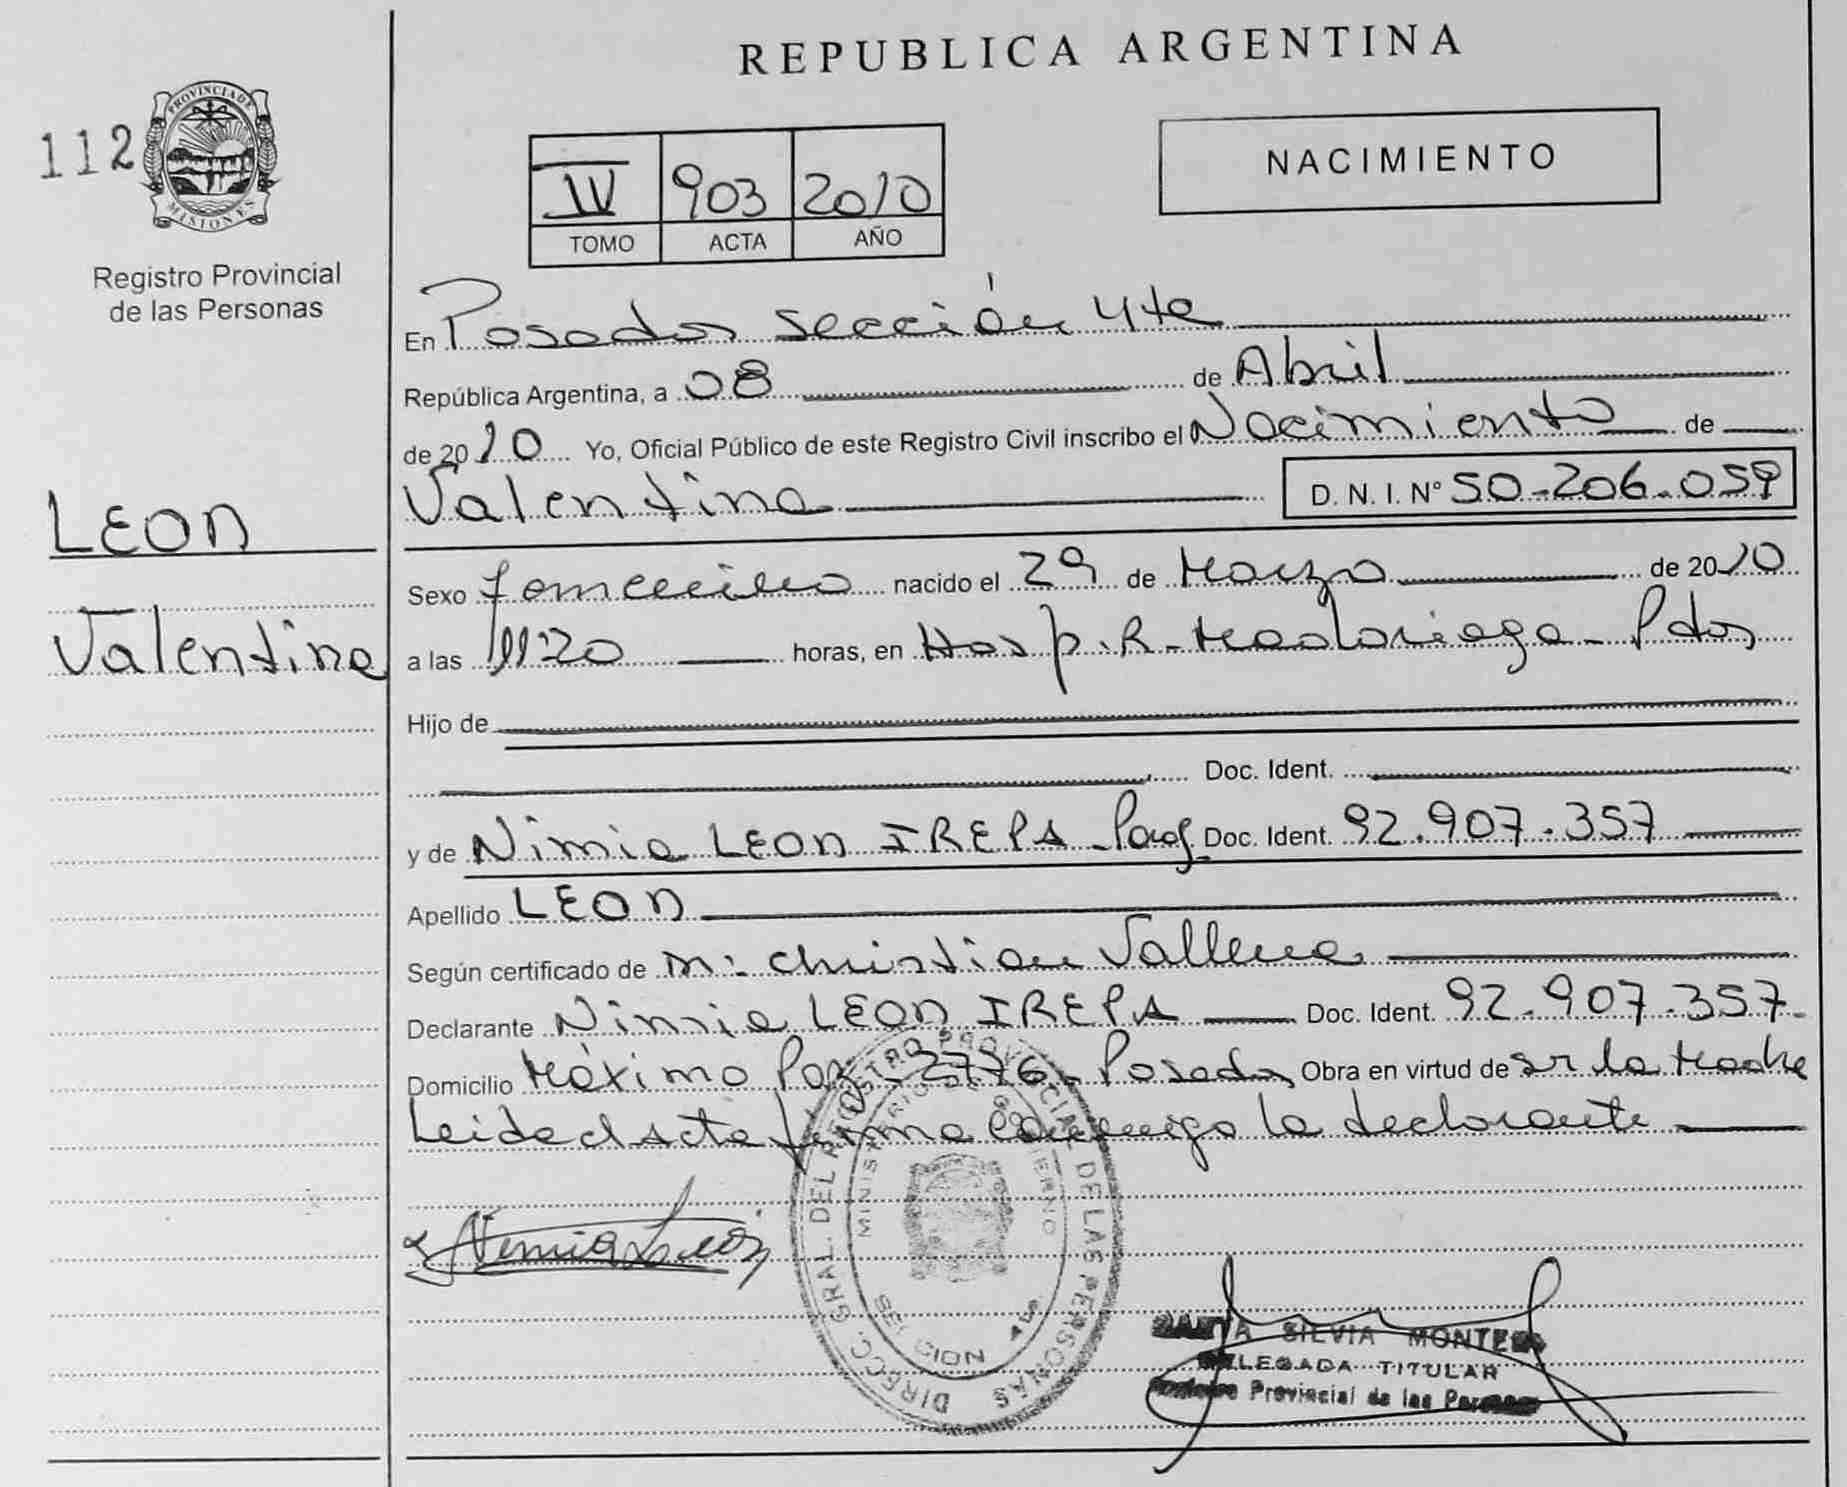 REPUBLICA ARGENTINA
112
PROVINCIA DE MISIONES
Registro Provincial
de las Personas
IV 903 2010
TOMO ACTA AÑO
NACIMIENTO
En Posadas sección 4ta
República Argentina, a 08 de Abril
de 2010 Yo, Oficial Público de este Registro Civil inscribo el Nacimiento de
Valentina D. N. I. Nº 50-206-059
LEON
Valentina
Sexo femenino nacido el 29 de Marzo de 2010
a las 11:20 horas, en Hosp. R. Madariaga - Pdas
Hijo de
Doc. Ident.
y de Nimia LEON IREPA - Parag. Doc. Ident. 92.907.357
Apellido LEON
Según certificado de M: Christian
Declarante Nimia LEON IREPA Doc. Ident. 92.907.357-
Domicilio Máximo Paz - 3776 - Posadas Obra en virtud de sr la Madre
Leida el Acta firma conmigo la declarante
Nimia Leon
DIRECC. GRAL. DEL REGISTRO PROVINCIAL DE LAS PERSONAS
MINISTERIO DE GOBIERNO
SILVIA MONTE
DELEGADA TITULAR
Provincial de las Personas